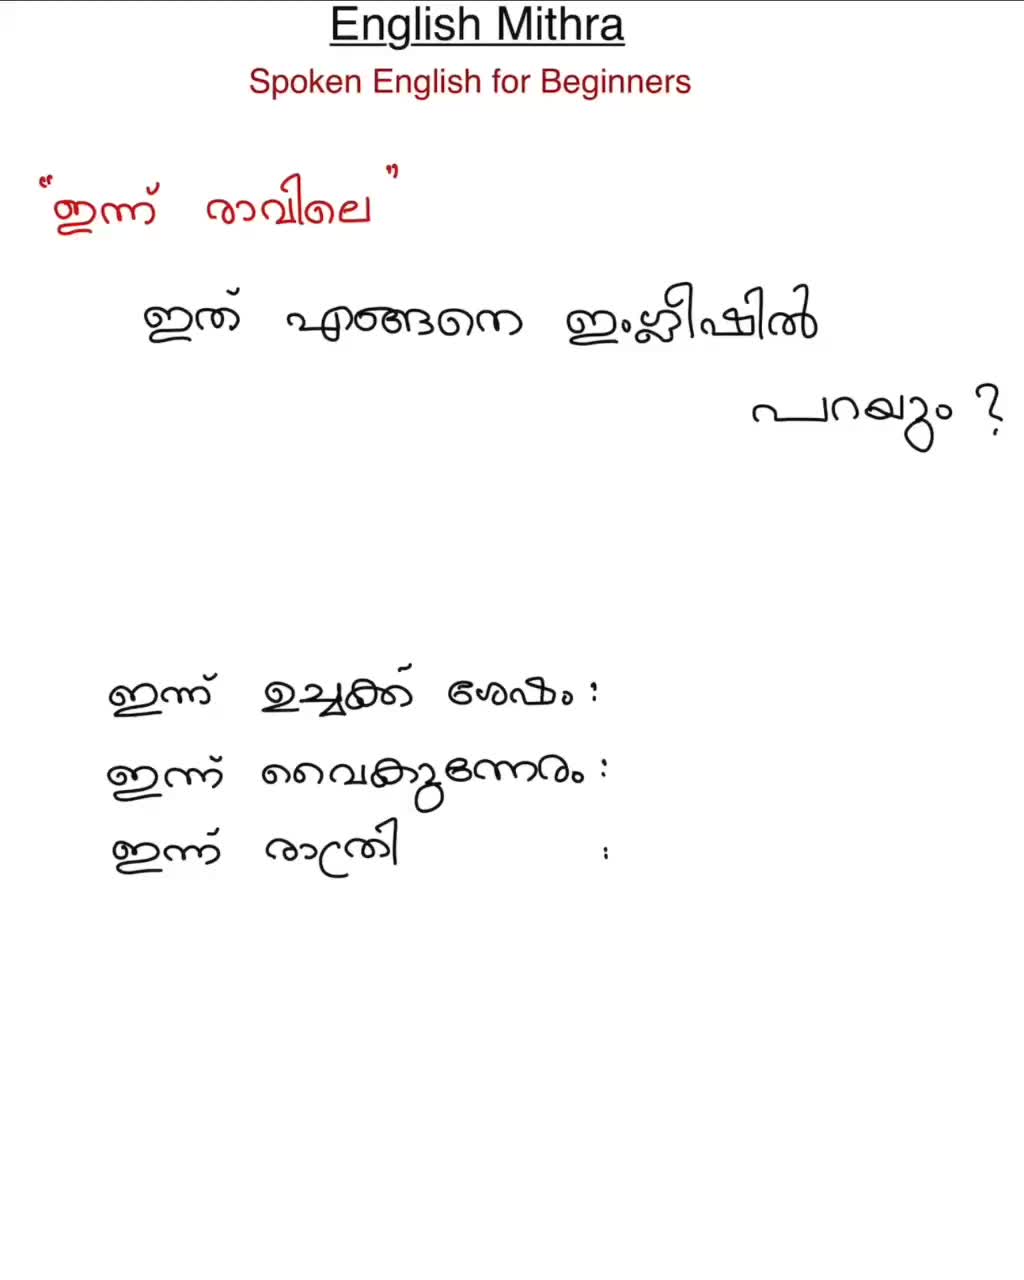 English Mithra
Spoken English for Beginners
"ഇന്ന് രാവിലെ"
ഇത് എങ്ങനെ ഇംഗ്ലീഷിൽ
പറയും ?
ഇന്ന് ഉച്ചക്ക് ശേഷം :
ഇന്ന് വൈകുന്നേരം :
ഇന്ന് രാത്രി :